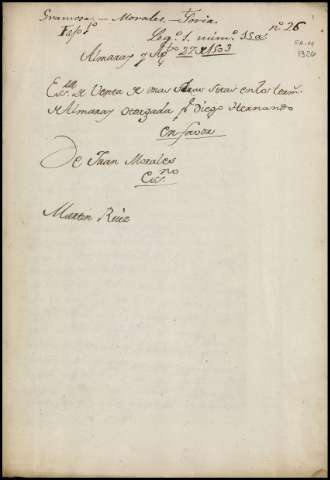 Granosa. — Morales. — Soria. nº 26
Fajº 1º
Legº. 1. númº. 33.a
Almaraz y Agº 27 de 1503
Escª de Venta de unas tierras sitas en los term.
de Almaraz otorgada pr Diego Hernando
en favor
De Juan Morales
Escno
Martin Ruiz